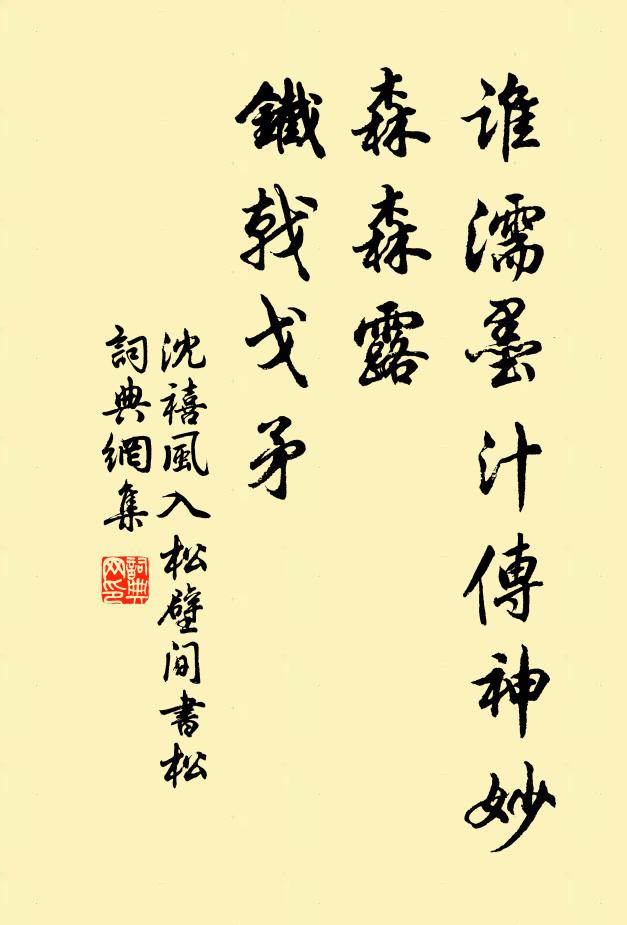 誰濡墨汁傳神妙
森森露
鐵戟戈矛
沈禧風入松壁间書松
詞典網集
詞典
网印